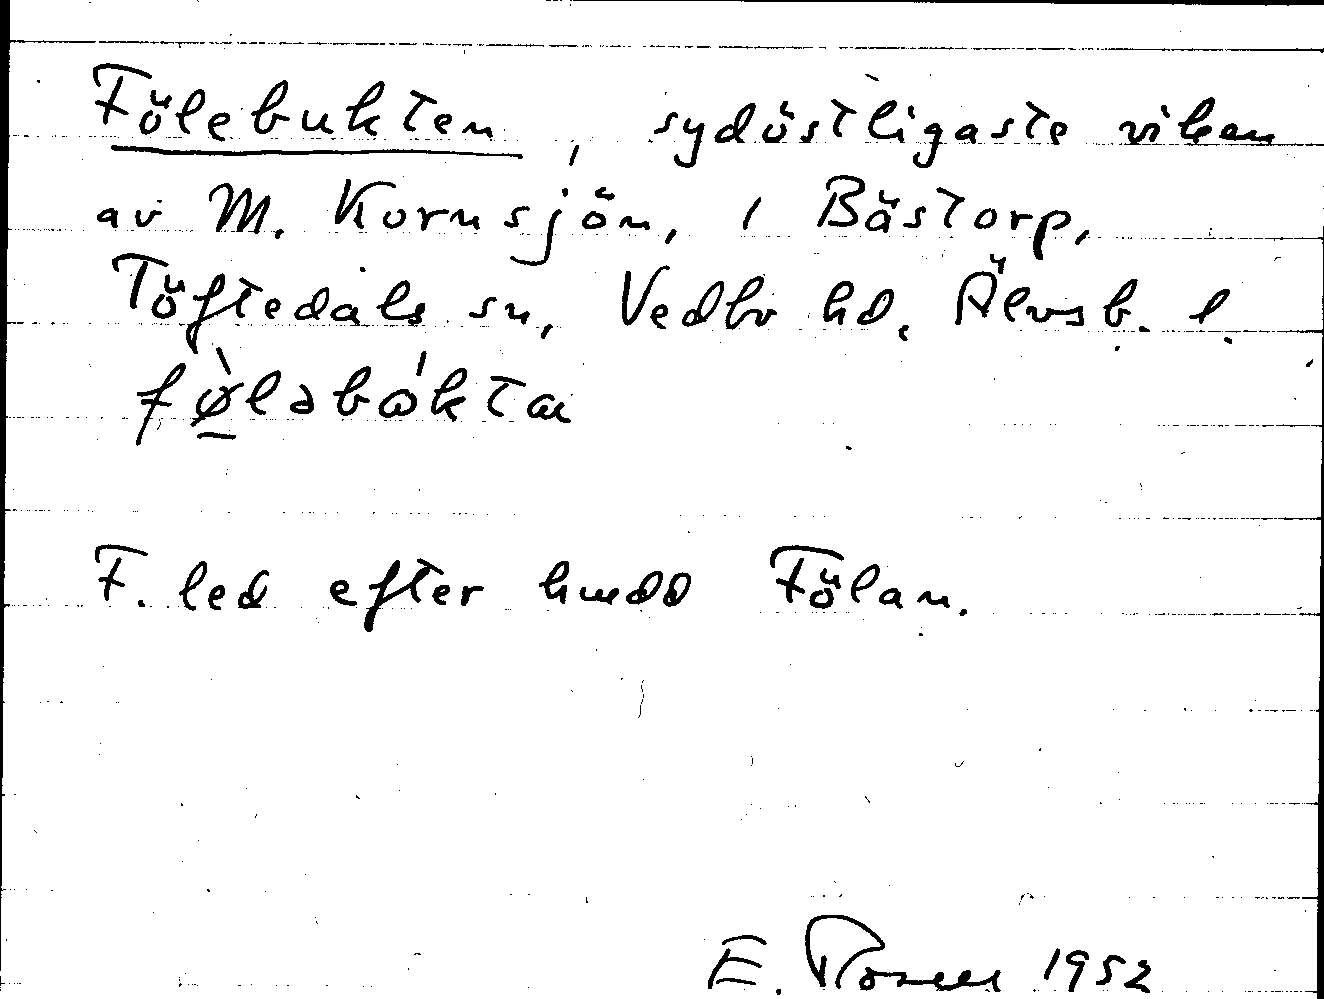 Fölebukten, sydöstligaste viken
av M. Kornsjön, i Bästorp,
Töftedals sn, Vedbo hd, Älvsb. l.
fø̱̀ləbω´ktan
F. led efter hudd Fölan.
E. 1952